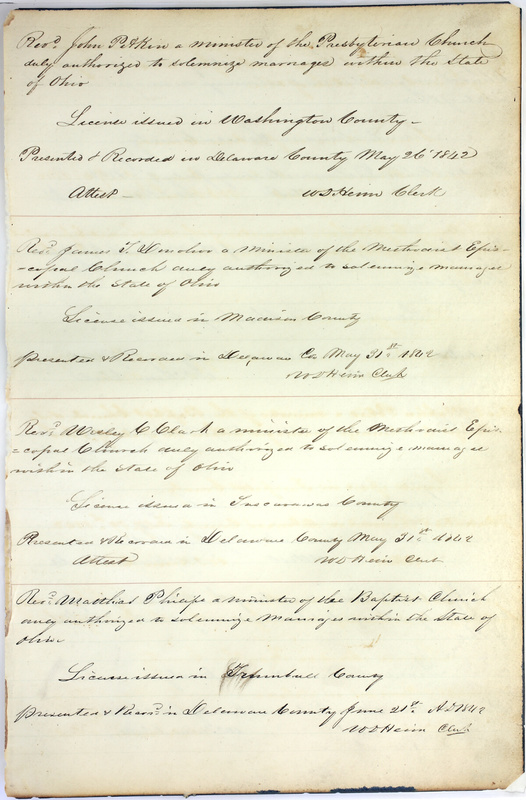 Revd. John Pitkin a minister of the Presbyterian Church
duly authorized to solemnize marriages within the State
of Ohio
License issued in Washington County –
Presented & Recorded in Delaware County May 26th 1842
Attest – W D Heim Clerk
Revd. James T. Donahoo a Minister of the Methodist Epis-
-copal Church duly authorized to solemnize marriages
within the State of Ohio
License issued in Madison County
Presented & Recorded in Delaware Co May 31st 1842
W D Heim Clerk
Revd. Wesley C Clark a minister of the Methodist Epis-
=copal Church duly authorized to solemnize marriages
within the State of Ohio
License issued in Tuscarawas County
Presented & Recorded in Delaware County May 31st 1842
Attest W D Heim Clerk
Revd. Matthias Philips a minister of the Baptist Church
duly authorized to solemnize Marriages within the State of
Ohio
License issued in Trumbull County
Presented & Recd. in Delaware County June 21st. AD 1842
W D Heim Clerk